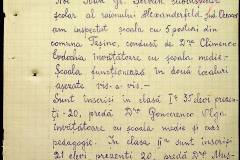 Noi Ioan Gh. Șerban subinspector
școlar al raionului Alexanderfeld Jud.
am inspectat școala cu 5 posturi din
comuna Tașino, condusă de D-ra Climenco
Eudochia învățătoare cu școala medie.-
Școala funcționează în două localuri
așezate vis-a-vis.-
Sunt înscriși în clasa I-a 35 elevi pre-
zenți-20, predă D-ra Goncerenco Olga
învățătoare cu școala medie și curs
pedagogic. În clasa II-a sunt înscriși
21 elevi prezenți 20, predă D-ra